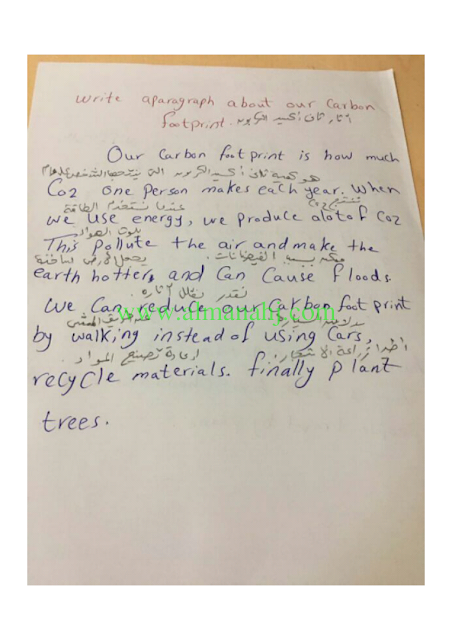 write aparagraph about our Carbon
footprint. آثار ثاني أكسيد الكربون
Our Carbon footprint is how much
هو كمية ثاني أكسيد الكربون التي ينتجها الشخص كل عام
Co2 one Person makes each year. When
عندما نستخدم الطاقة ننتج co2
we use energy, we produce alotof Co2
يلوث الهواء
This Pollute the air and make the
يجعل الأرض ساخنة يسبب الفيضانات
earth hotter, and Can Cause floods.
نقدر نقلل آثاره
we Can reduce our Carbon foot print
www.almanahj.com
عن طريق المشي بدلا من السيارة
by walking instead of using Cars,
إعادة تصنيع المواد أخيرا زراعة الأشجار
recycle materials. finally plant
trees.